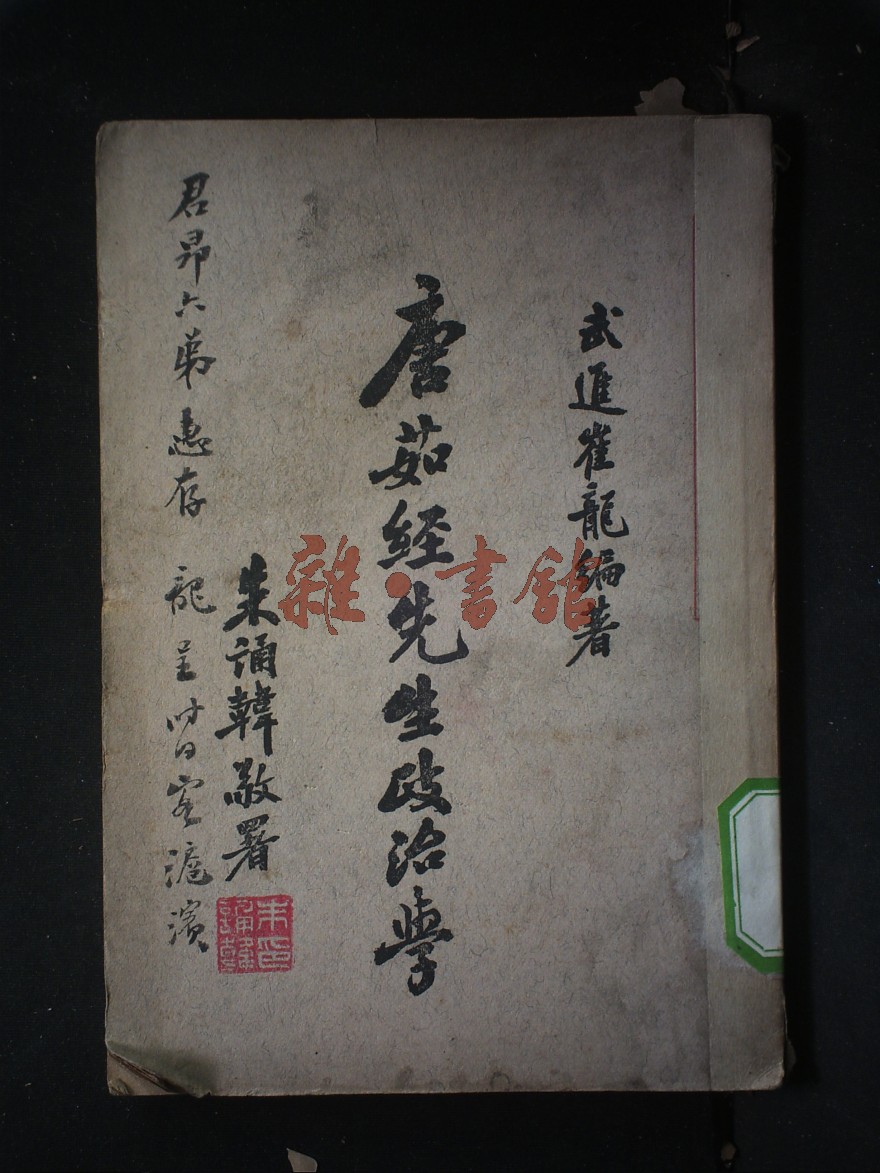 武進崔龍編著
唐茹經先生政治學
朱誦韓敬署
朱誦韓印
君昂六弟惠存 龍呈 時同客滬濱
雜·書館